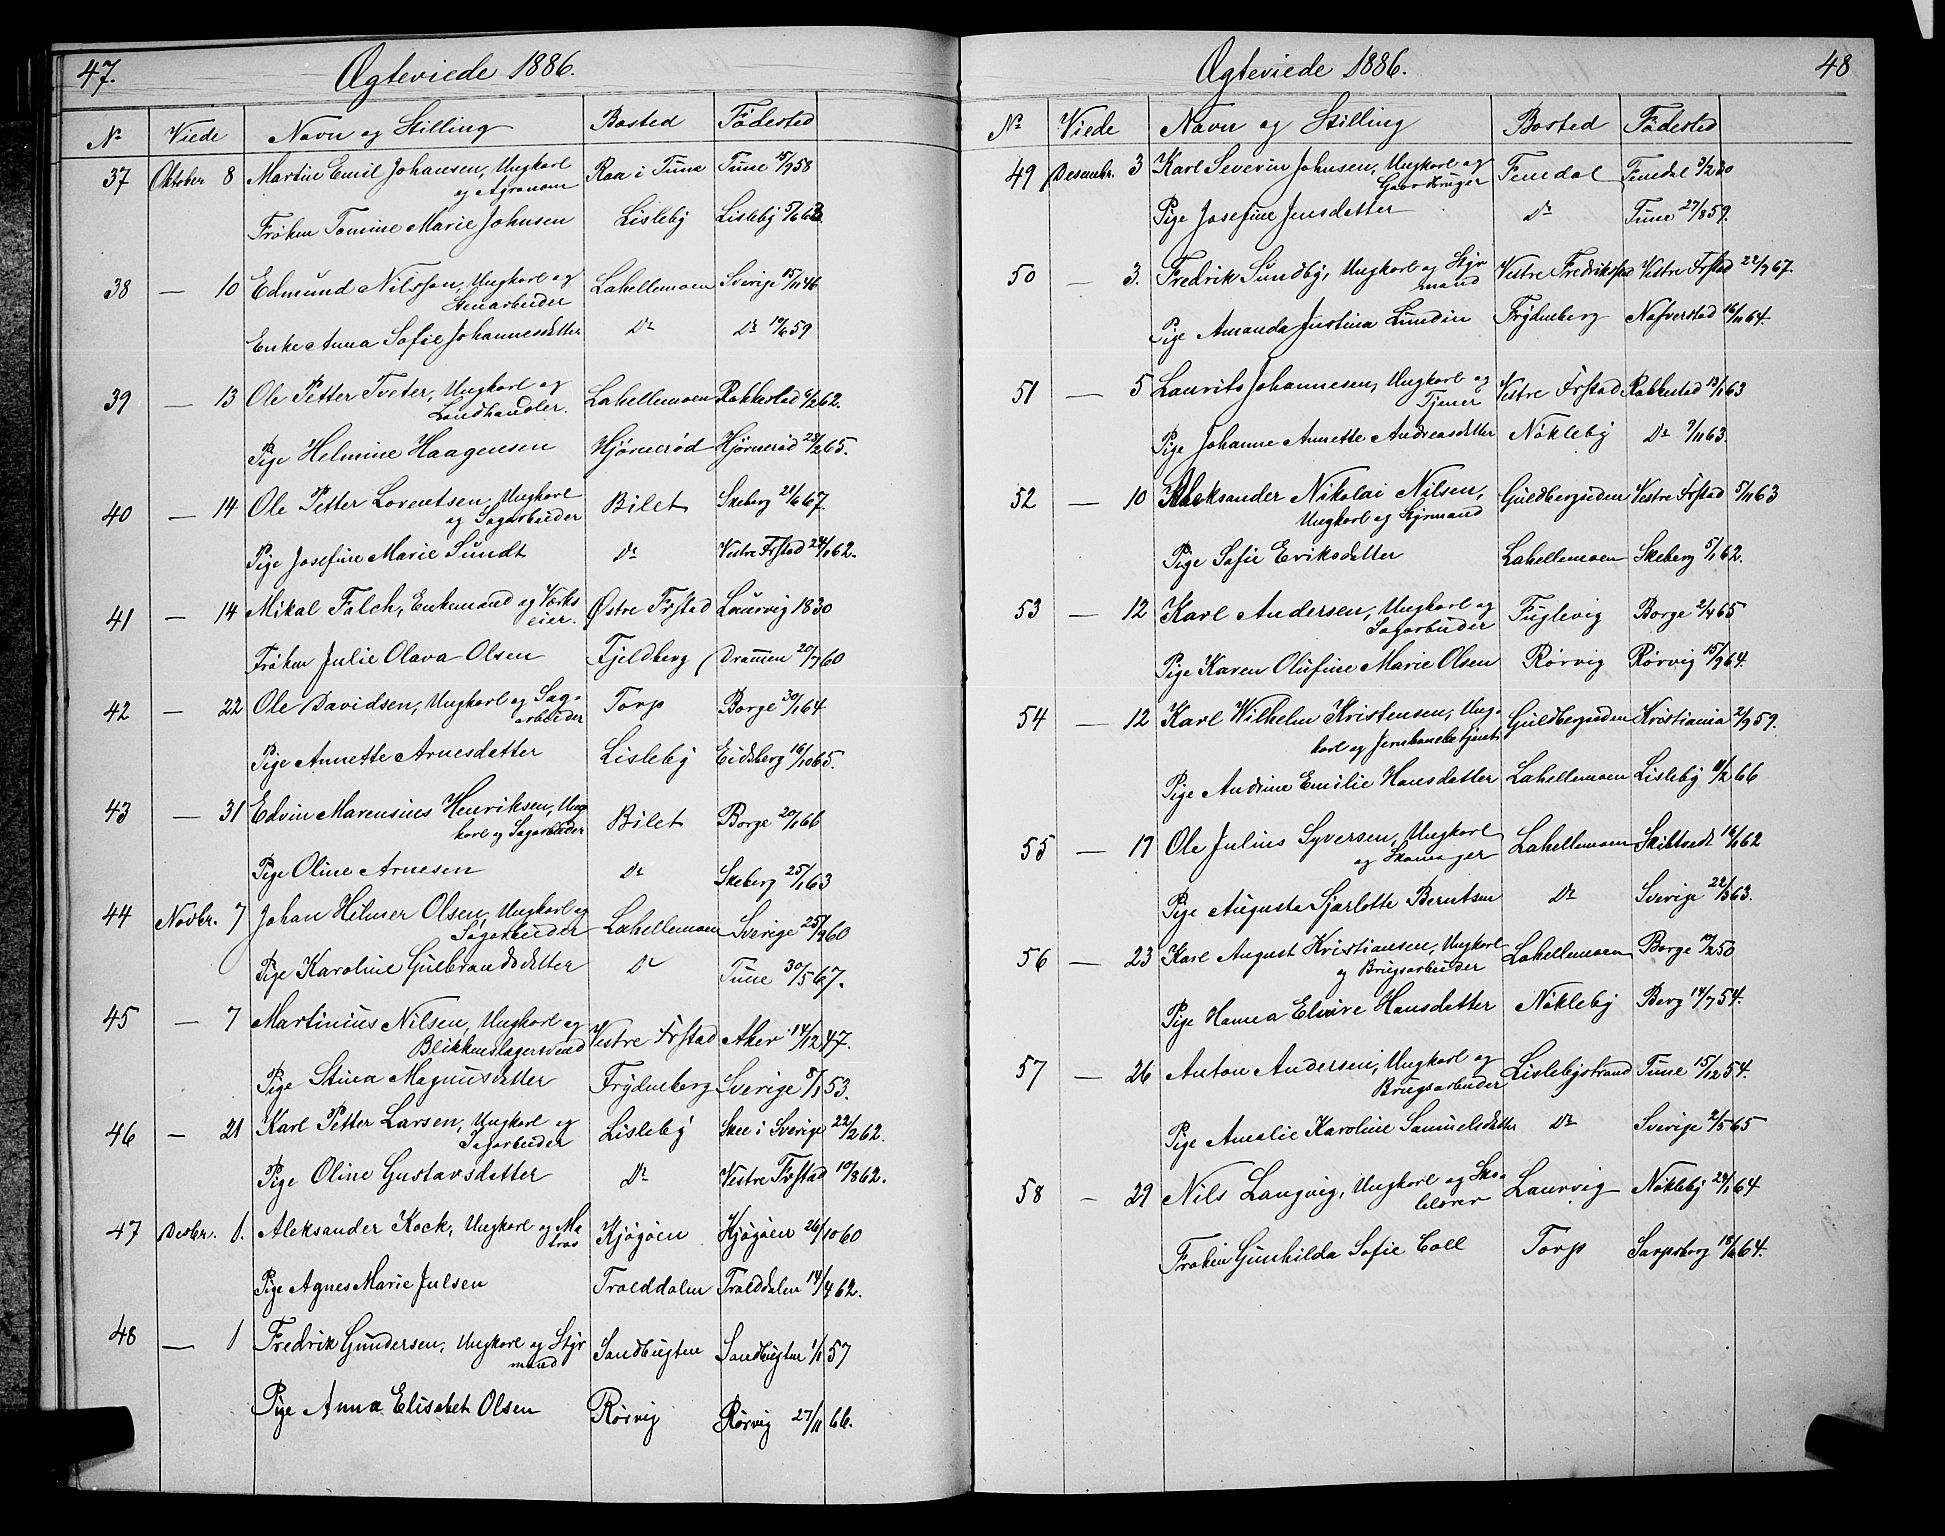 47.
Ægteviede 1886.
No Viede Navn og Stilling Bosted Fødested
37 Oktober 8 Martin Emil Johansen, Ungkarl Raa i Tune Tune 15/9 58
og Agronom
Frøken Tomine Marie Johnsen Lisleby Lisleby 5/6 68.
38 — 10 Edmund Nilsson, Ungkarl og Lahellemoen Sverige 15/11 46
Stenarbeider
Enke Anna Sofie Johannesdatter Do Do 10/6 59
39 — 13 Ole Petter Tveter, Ungkarl og Lahellemoen Rakkestad 9/2 62.
Landhandler.
Pige Helmine Haagensen Hjørnerød Hjørnerød 28/2 65.
40 — 14 Ole Petter Lorentsen, Ungkarl Bilet Skeberg 21/6 67.
og Sagarbeider
Pige Josefine Marie Sundt Do Vestre Frstad 24/1 62.
41 — 14 Mikal Falch, Enkemand og Værks Østre Frstad Laurvig 1830
eier.
Frøken Julie Olava Olsen Fjeldberg Drammen 20/7 60
42 — 22 Ole Davidsen, Ungkarl og Sag- Torp Borge 30/1 64
arbeider
Pige Annette Arnesdatter Lisleby Eidsberg 16/10 65.
43 — 31 Edvin Marensius Henriksen, Ung Bilet Borge 20/1 66
karl og Sagarbeider
Pige Oline Arnesen Do Skeberg 25/1 63
44 Novbr. 7 Johan Hilmer Olsen, Ungkarl og Lahellemoen Sverige 25/9 60
Sagarbeider
Pige Karoline Gulbrandsdatter Do Tune 30/5 67.
45 — 7 Martinius Nilsen, Ungkarl og Vestre Frstad Aker 14/12 47.
Blikkenslagersvend
Pige Stina Magnusdatter Frydenberg Sverige 8/1 53.
46 — 21 Karl Petter Larsen, Ungkarl og Lisleby Skee i Sverige 22/2 62.
Sagarbeider
Pige Oline Gustavsdatter Do Vestre Frstad 10/8 62.
47 Desbr. 1. Aleksander Kock, Ungkarl og Ma Kjøgøen Kjøgøen 26/10 60
tros
Pige Agnes Marie Julsen Trolddalen Trolddalen 14/4 62.
48 — 1 Fredrik Gundersen, Ungkarl og Styr Sandbugten Sandbugten 1/1 57
mand
Pige Anna Elisabet Olsen Rørvig Rørvig 27/11 66.
48
Ægteviede 1886.
No Viede Navn og Stilling Bosted Fødested
49 Desembr. 3 Karl Severin Johnsen, Ungkarl og Femdal Femdal 3/2 30
Gaardbruger
Pige Josefine Jensdatter Do Tune 27/8 59.
50 — 3. Fredrik Sundby, Ungkarl og Styr Vestre Fredrikstad Vestre Frstad 22/7 67.
mand
Pige Amanda Justina Lundin Frydenberg Nafverstad 16/11 64.
51 — 5 Laurits Johannesen, Ungkarl og Vestre Frstad Rakkestad 13/1 63
Tjener
Pige Johanne Annette Andreasdatter Nøkleby Do 9/11 63.
52 — 10 Aleksander Nikolai Nilsen, Guldbergsiden Vestre Frstad 5/11 63
Ungkarl og Styrmand
Pige Sofie Eriksdatter Lahellemoen Skeberg 5/1 62.
53 — 12 Karl Andersen, Ungkarl og Fuglevig Borge 2/4 65
Sagarbeider
Pige Karen Olufine Marie Olsen Rørvig Rørvig 15/9 64.
54 — 12 Karl Wilhelm Kristensen, Ung- Guldbergsiden Kristiania 2/9 59.
karl og Jernbanebetjent
Pige Andrine Emilie Hansdatter Lahellemoen Lisleby 11/2 66
55 — 17 Ole Julius Syversen, Ungkarl Lahellemoen Skibtvedt 16/1 62
og Skomager
Pige Augusta Sjarlotte Berntsen Do Sverige 22/3 63.
56 — 23 Karl August Kristiansen, Ungkarl Lahellemoen Borge 19/2 50
og Brugsarbeider
Pige Hanna Elvire Hansdatter Nøkleby Berg 14/7 54.
57 — 26 Anton Andersen, Ungkarl og Lislebystrand Tune 15/12 54.
Brugsarbeider
Pige Amalie Karoline Samuelsdatter Do Sverige 2/5 65
58 — 29 Nils Langvig, Ungkarl og Sko- Laurvig Nøkleby 24/1 64
lelærer
Frøken Gunhilda Sofie Coll Torp Sarpsborg 18/6 64.